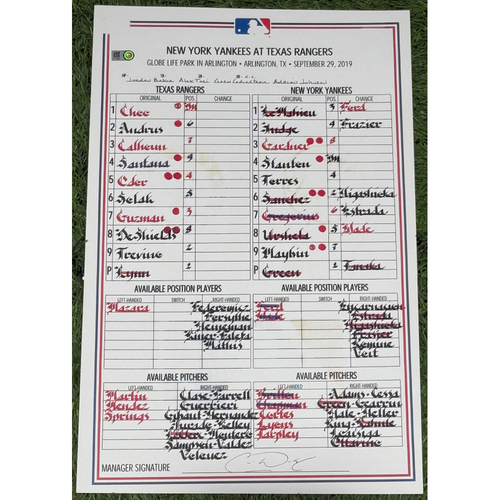 NEW YORK YANKEES AT TEXAS RANGERS
GLOBE LIFE PARK IN ARLINGTON • ARLINGTON, TX • SEPTEMBER 29, 2019
Jordan Baker Alex Tosi
TEXAS RANGERS NEW YORK YANKEES
ORIGINAL POS. CHANGE ORIGINAL POS. CHANGE
1 Choo 1 LeMahieu 3 Ford
2 Andrus 6 2 Judge 9 Frazier
3 Calhoun 7 3 Gardner 8
4 Santana 9 4 Stanton
5 Odor 4 5 Torres 4
6 Solak 5 6 Sanchez 2 Higashioka
7 Guzman 3 7 Gregorius 6 Estrada
8 DeShields 8 8 Urshela 5 Wade
9 Trevino 2 9 Maybin 7
P Lynn 1 P Green 1 Tanaka
AVAILABLE POSITION PLAYERS AVAILABLE POSITION PLAYERS
LEFT-HANDED SWITCH RIGHT-HANDED LEFT-HANDED SWITCH RIGHT-HANDED
Mazara Federowicz Ford Encarnacion
Forsythe Wade Estrada
Heineman Higashioka
Kiner-Falefa Frazier
Mathis Romine
Voit
AVAILABLE PITCHERS AVAILABLE PITCHERS
LEFT-HANDED RIGHT-HANDED LEFT-HANDED RIGHT-HANDED
Martin Clase-Farrell Britton Adams-Cessa
Mendez Guerrieri Chapman Green-Gearrin
Springs Gibaut-Hernandez Cortes Hale-Heller
Jurado-Kelley Lyons King-Kahnle
Leclerc-Montero Tarpley Loaisiga
Sampson-Valdez Ottavino
Volquez
MANAGER SIGNATURE